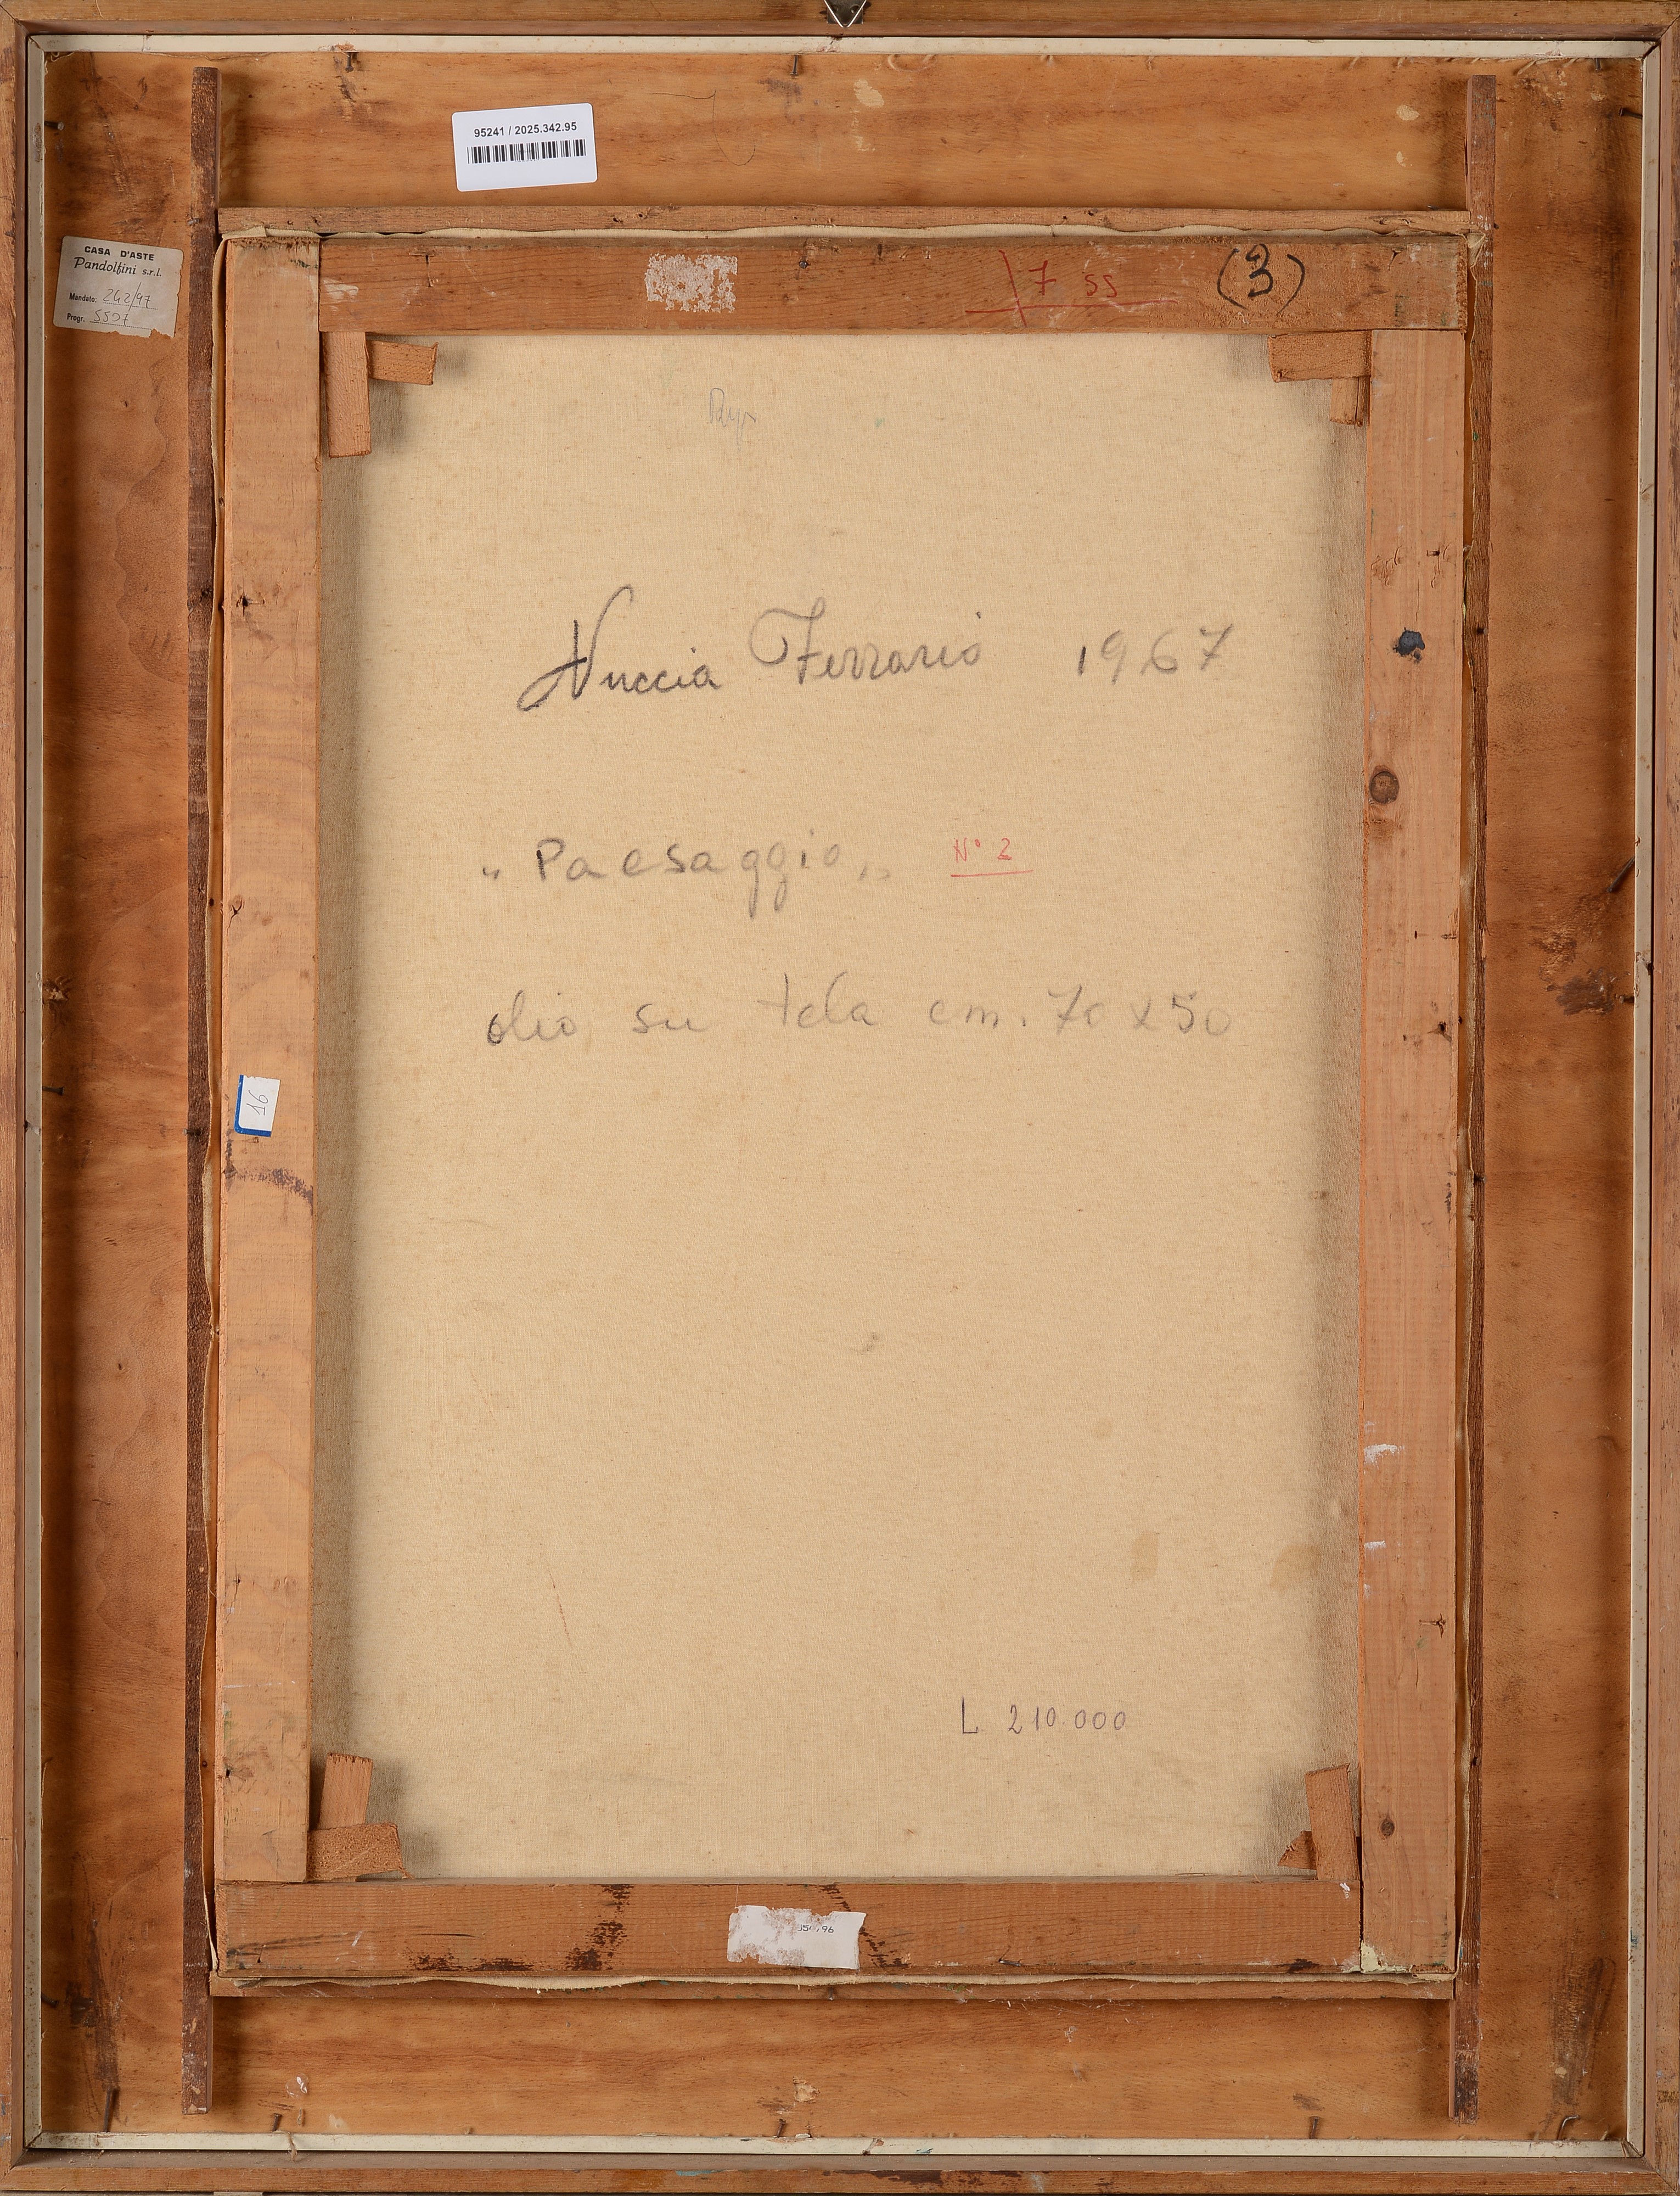 95241 / 2025.342.95
CASA D'ASTE
Pandolfini s.r.l.
Mandato: 242/97
Progr.
7 SS
(3)
Nuccia Ferrario 1967
"Paesaggio" N° 2
olio su tela cm. 70 x 50
16
L 210.000